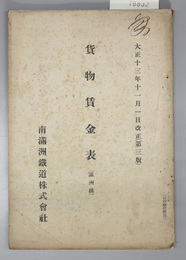 大正十三年十一月一日改正第三版
貨物賃金表
南滿洲鐵道株式會社